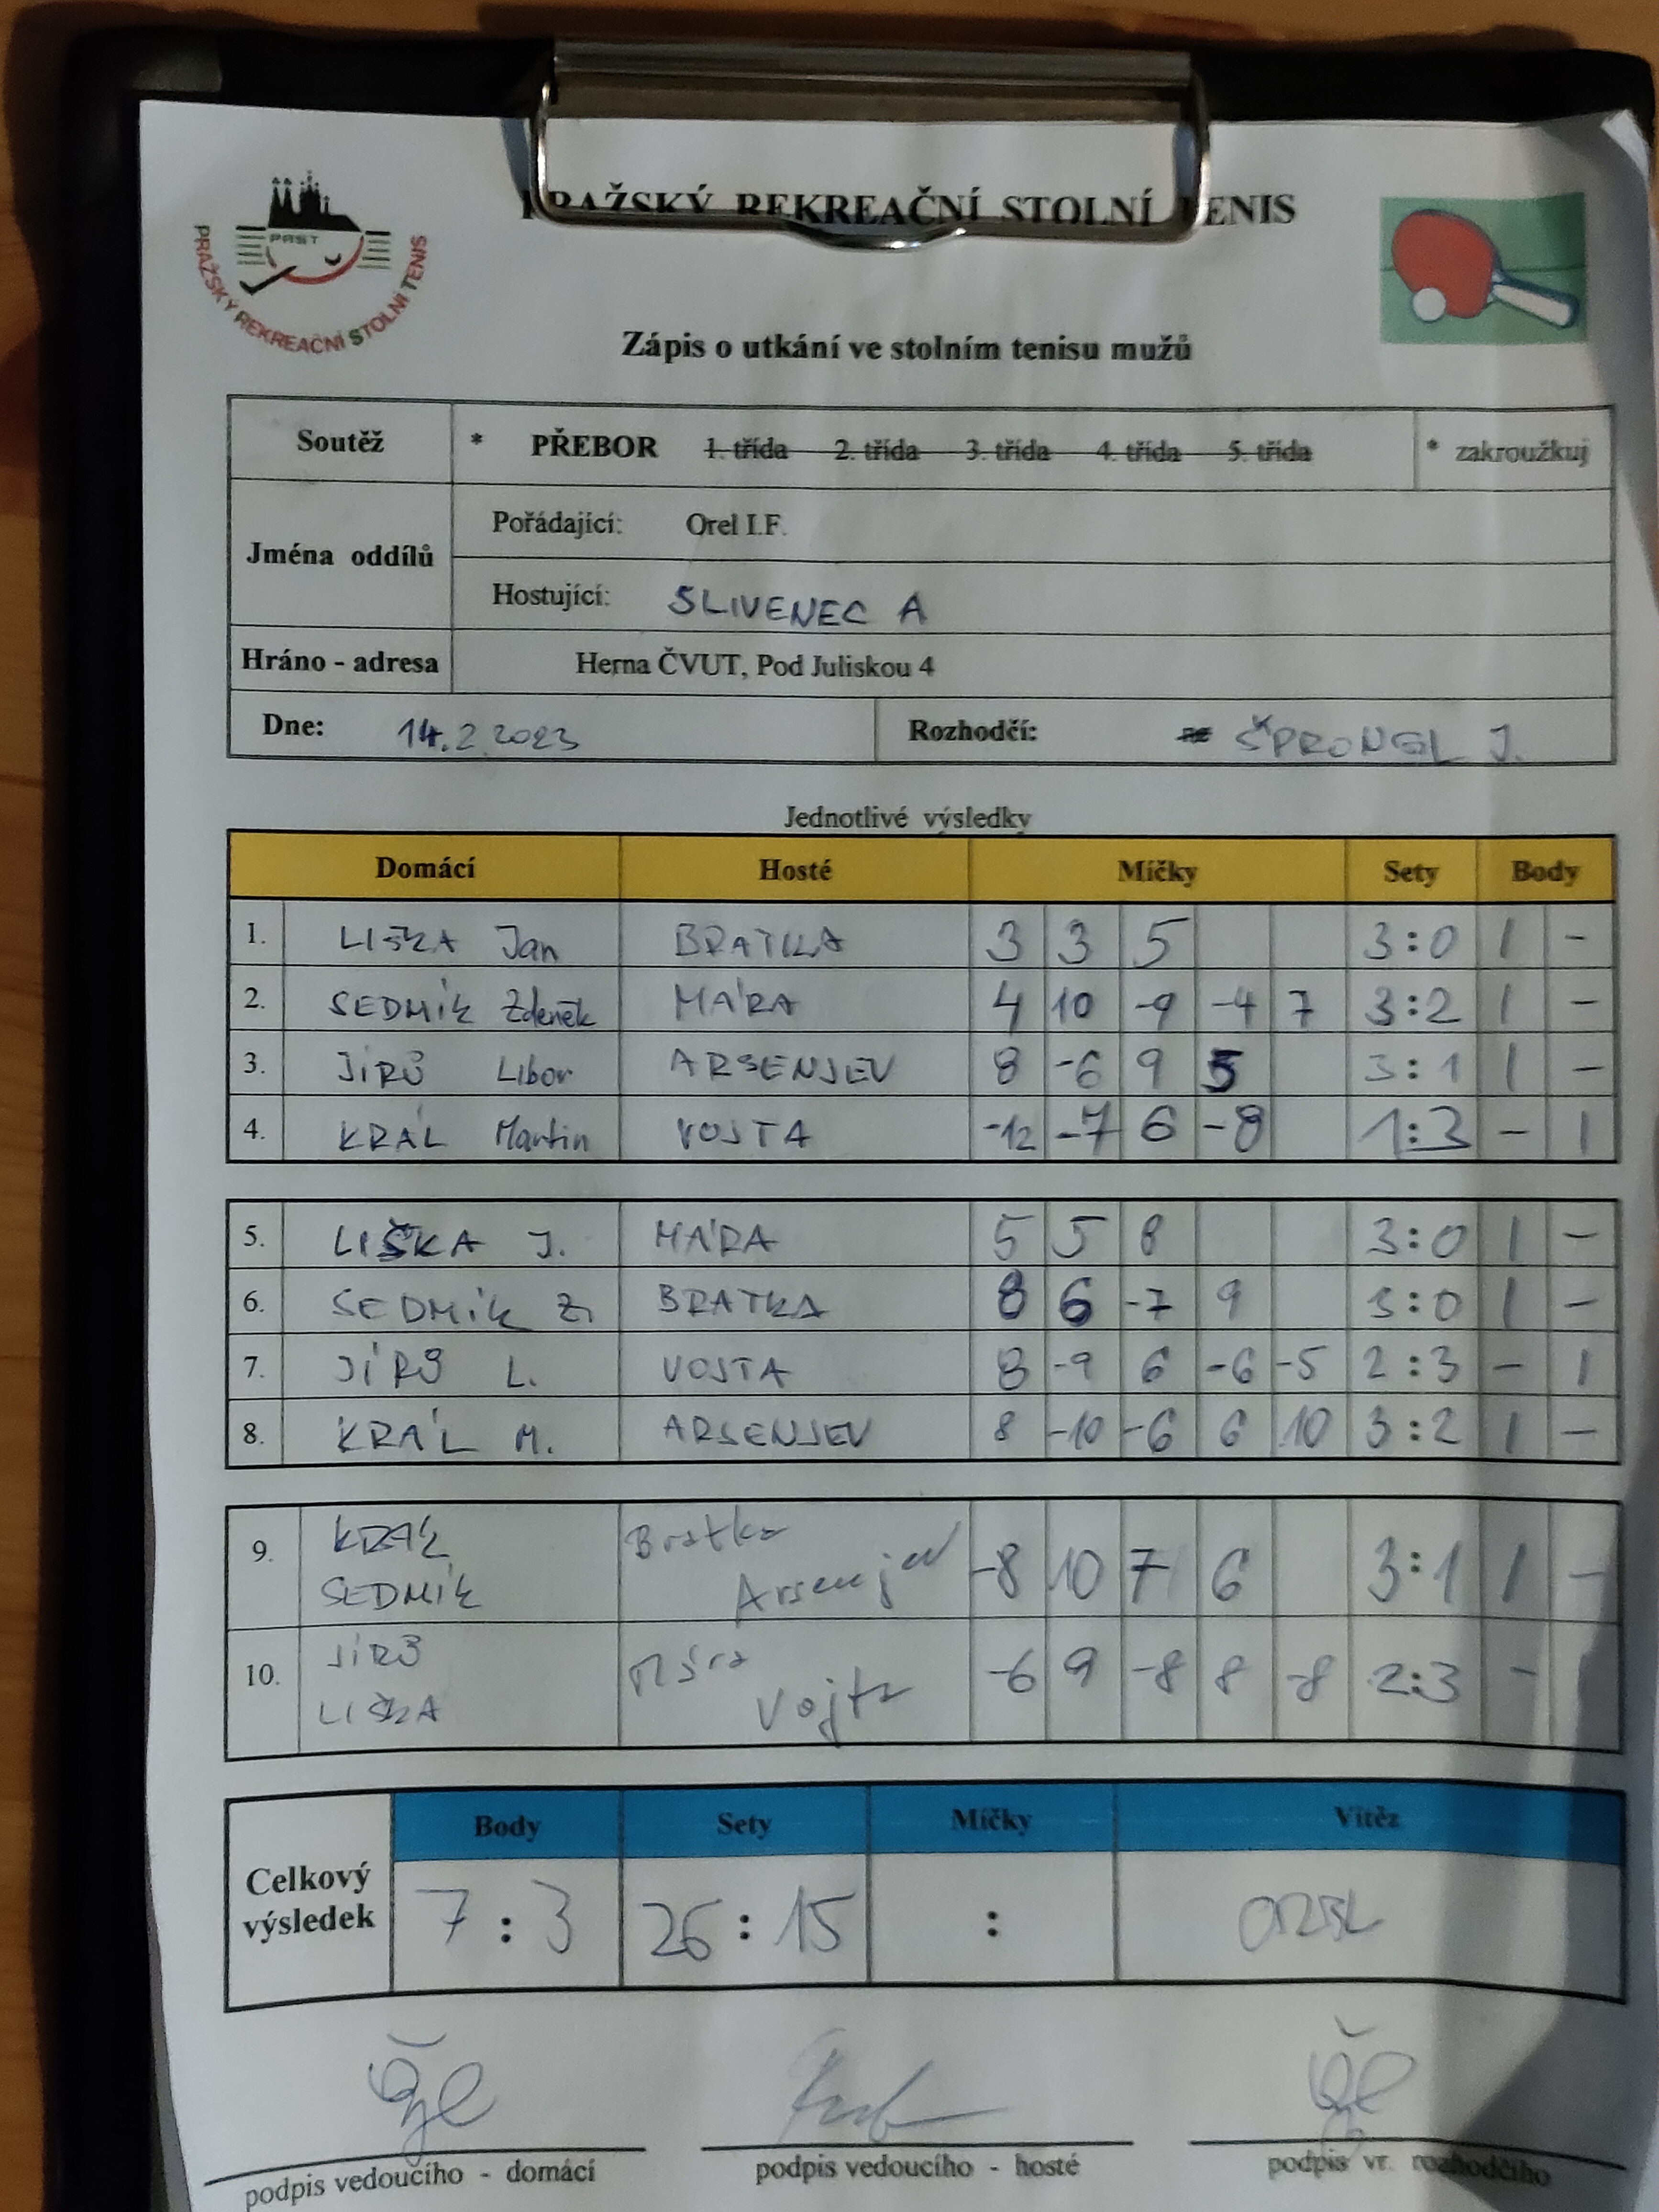 PRAŽSKÝ REKREAČNÍ STOLNÍ TENIS
PRST
PRAŽSKÝ REKREAČNÍ STOLNÍ TENIS
Zápis o utkání ve stolním tenisu mužů
Soutěž * PŘEBOR 1. třída 2. třída 3. třída 4. třída 5. třída * zakroužkuj
Jména oddílů
Pořádající: Orel I.F.
Hostující: SLIVENEC A
Hráno - adresa Herna ČVUT, Pod Juliskou 4
Dne: 14.2.2023 Rozhodčí: ŠPRONGL J.
Jednotlivé výsledky
Domácí Hosté Míčky Sety Body
1. LIŠKA Jan BRATKA 3 3 5 3:0 1 -
2. SEDMÍK Zdeněk MÁRA 4 10 -9 -4 7 3:2 1 -
3. JÍRŮ Libor ARSENJEV 8 -6 9 5 3:1 1 -
4. KRÁL Martin VOJTA -12 -7 6 -8 1:3 - 1
5. LIŠKA J. MÁRA 5 5 8 3:0 1 -
6. SEDMÍK Z. BRATKA 8 6 -7 9 3:0 1 -
7. JÍRŮ L. VOJTA 8 -9 6 -6 -5 2:3 - 1
8. KRÁL M. ARSENJEV 8 -10 -6 6 10 3:2 1 -
9. KRÁL Bratka -8 10 7 6 3:1 1 -
SEDMÍK Arsenjev
10. JÍRŮ Mára -6 9 -8 8 -8 2:3 - 1
LIŠKA Vojta
Celkový výsledek
Body Sety Míčky Vítěz
7:3 26:15 : OREL
podpis vedoucího - domácí podpis vedoucího - hosté podpis vr. rozhodčího